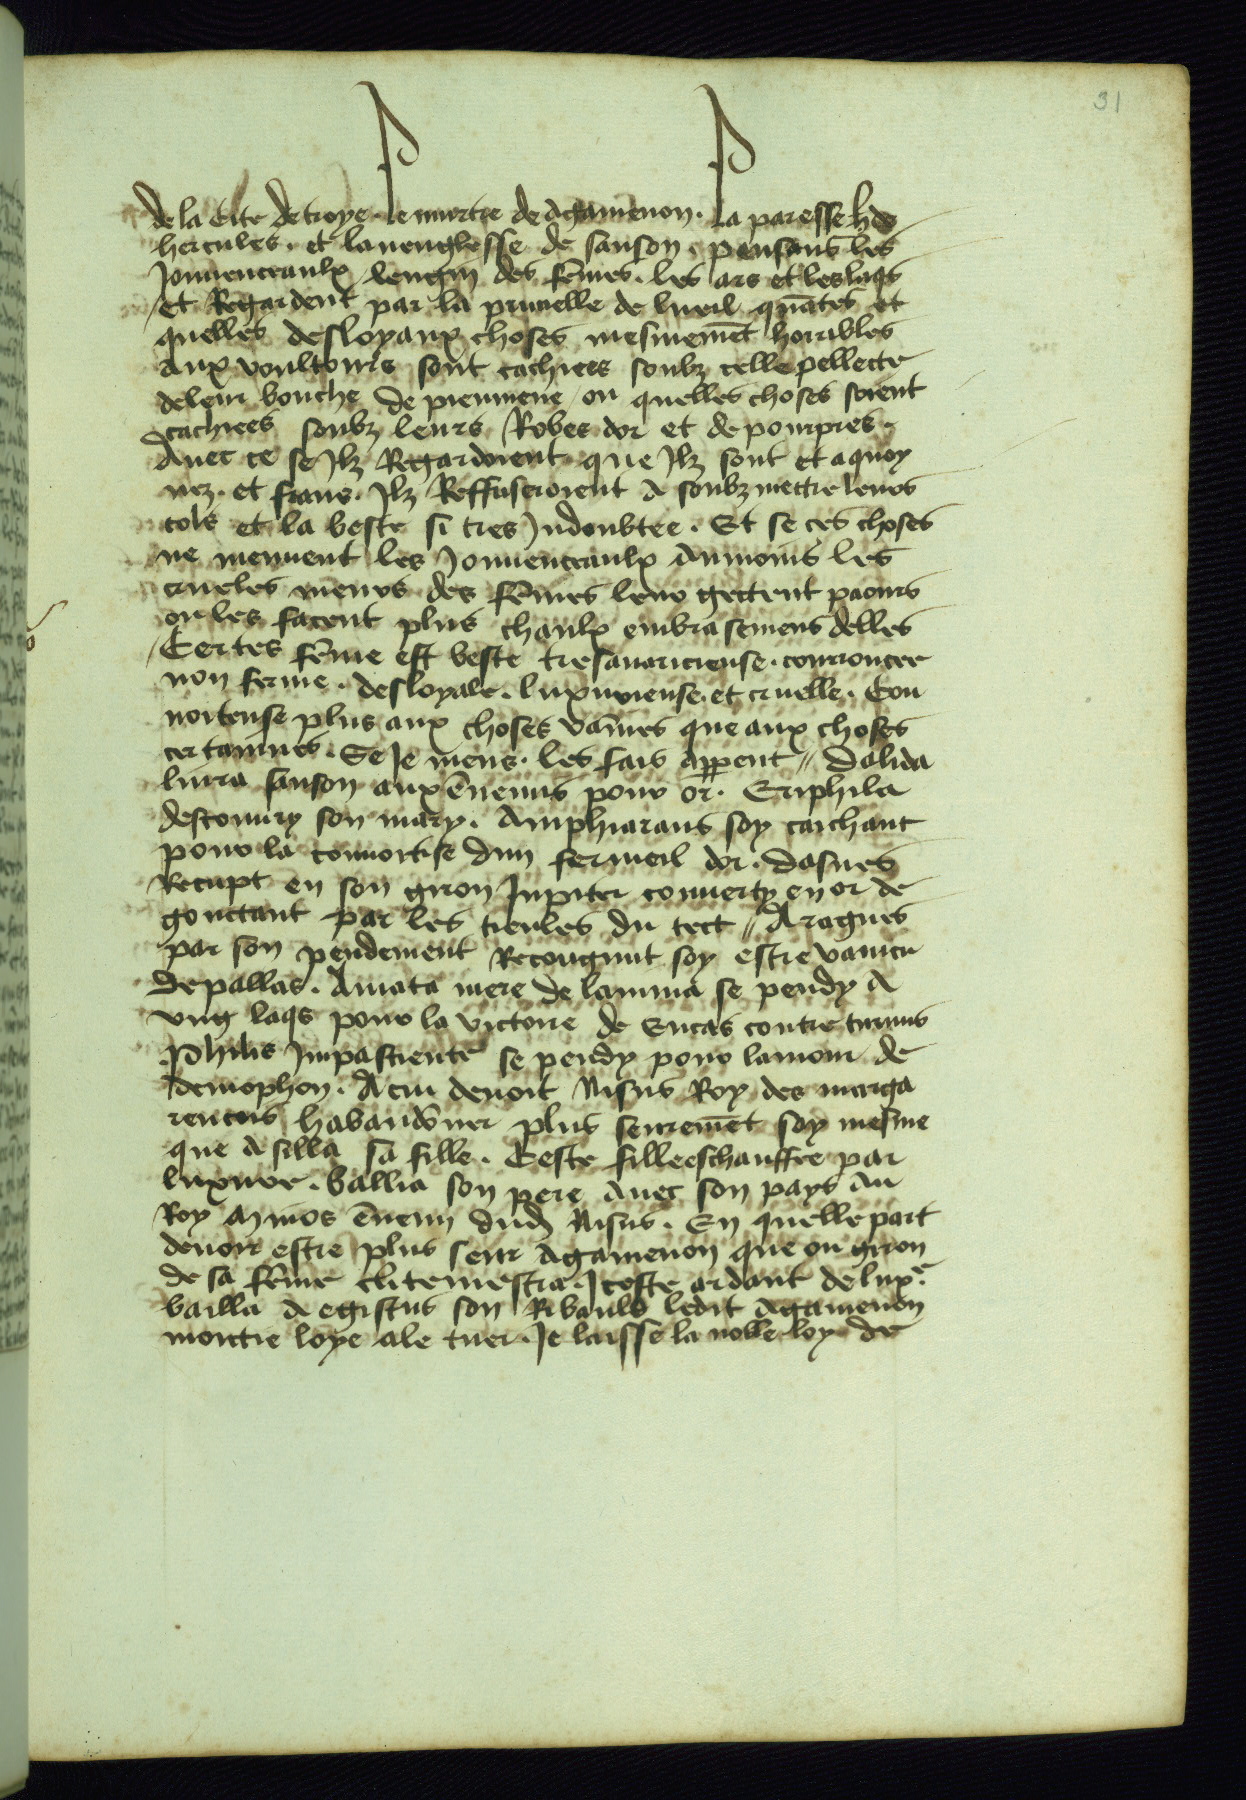 31
de la cite de troye. Le murtre de agamenon. La paresse de
hercules. et laueuglesse de sanson. pensans les
Jouuenceaulx lengin des fe͂mes. les ars et les laqs
et Regardent par la prunelle de lueil qua͂tes et
quelles desloyaux choses mesmeme͂t horribles
aux voultours sont cachiees soubz celle pellecte
de leur bouche de pieumene / ou quelles choses soient
cachiees soubz leurs Robes dor et de pourpres.
Auec ce se Jlz Regardoient que Jlz sont et a quoy
nez. et frans. Jlz Reffuseroient a soubz mettre leurs
colz et la beste si tres Jndoubtee. Et se ces choses
ne meuuent les Jouuenceaulx Aumoins les
crueles meurs des fe͂mes leur gectent paours
ou les facent plus chaulx embrasemens delles
Certes fe͂me est beste tresauaricieuse. courroucee
non ferme. desloyale. luxurieuse. et cruelle. Con
uoiteuse plus aux choses vaines que aux choses
certaines. Se Je mens. les fais appent // Dalida
liura sanson aux e͂nemis pour or. Eriphila
descouury son mary. Amphiaraus soy cachant
pour la conuoitise dun fermeil dor. dasnes
Recupt en son giron Jupiter conuerty en or de
gouctant par les tieules du tect // Aragnes
par son pendement Recongnut soy estre vaincu
de pallas. Amata mere de lauina se pendy a
vng laqs pour la victoire de Eneas contre turnus
Philis Jmpasciente se pendy pour lamour de
demophon. A cui deuoit Nisus Roy des marga
rencois habando͂ner plus seureme͂t soy mesme
que a silla sa fille. Ceste fille eschauffee par
luxure. bailla son pere auec son pays au
Roy Minos e͂nemy dud Nisus. En quelle part
deuoit estre plus seur Agamenon que ou giron
de sa fe͂me clitemestra. Jceste ardant de luxe
bailla a egistus son Ribauld ledit Agamenon
monstre loye a le tuer. Je laisse la nolle loy de